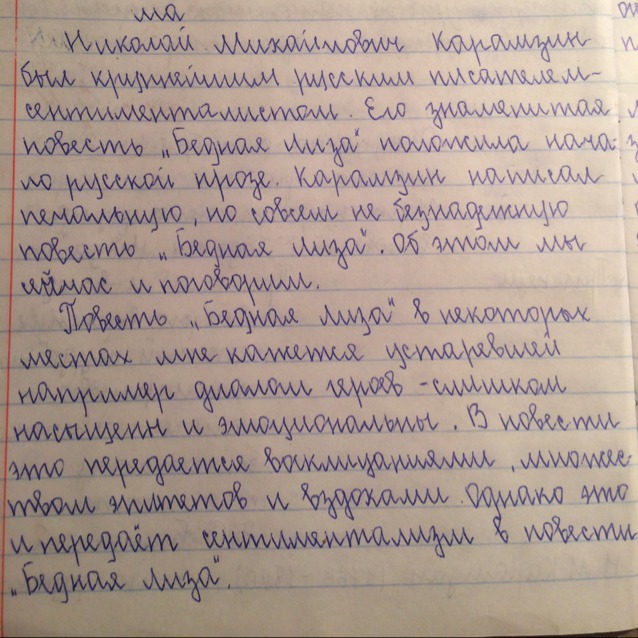 ма
Николай Михайлович Карамзин
был крупнейшим русским писателем-
сентименталистом. Его знаменитая
повесть „Бедная Лиза“ положила нача-
ло русской прозе. Карамзин написал
печальную, но совсем не безнадежную
повесть „Бедная Лиза“. Об этом мы
сейчас и поговорим.
Повесть „Бедная Лиза“ в некоторых
местах мне кажется устаревшей
например диалоги героев - слишком
насыщенн и эмоциональны. В повести
это передается восклицаниями, множес-
твом эпитетов и вздохами. Однако это
и передаёт сентиментализм в повести
„Бедная Лиза“.